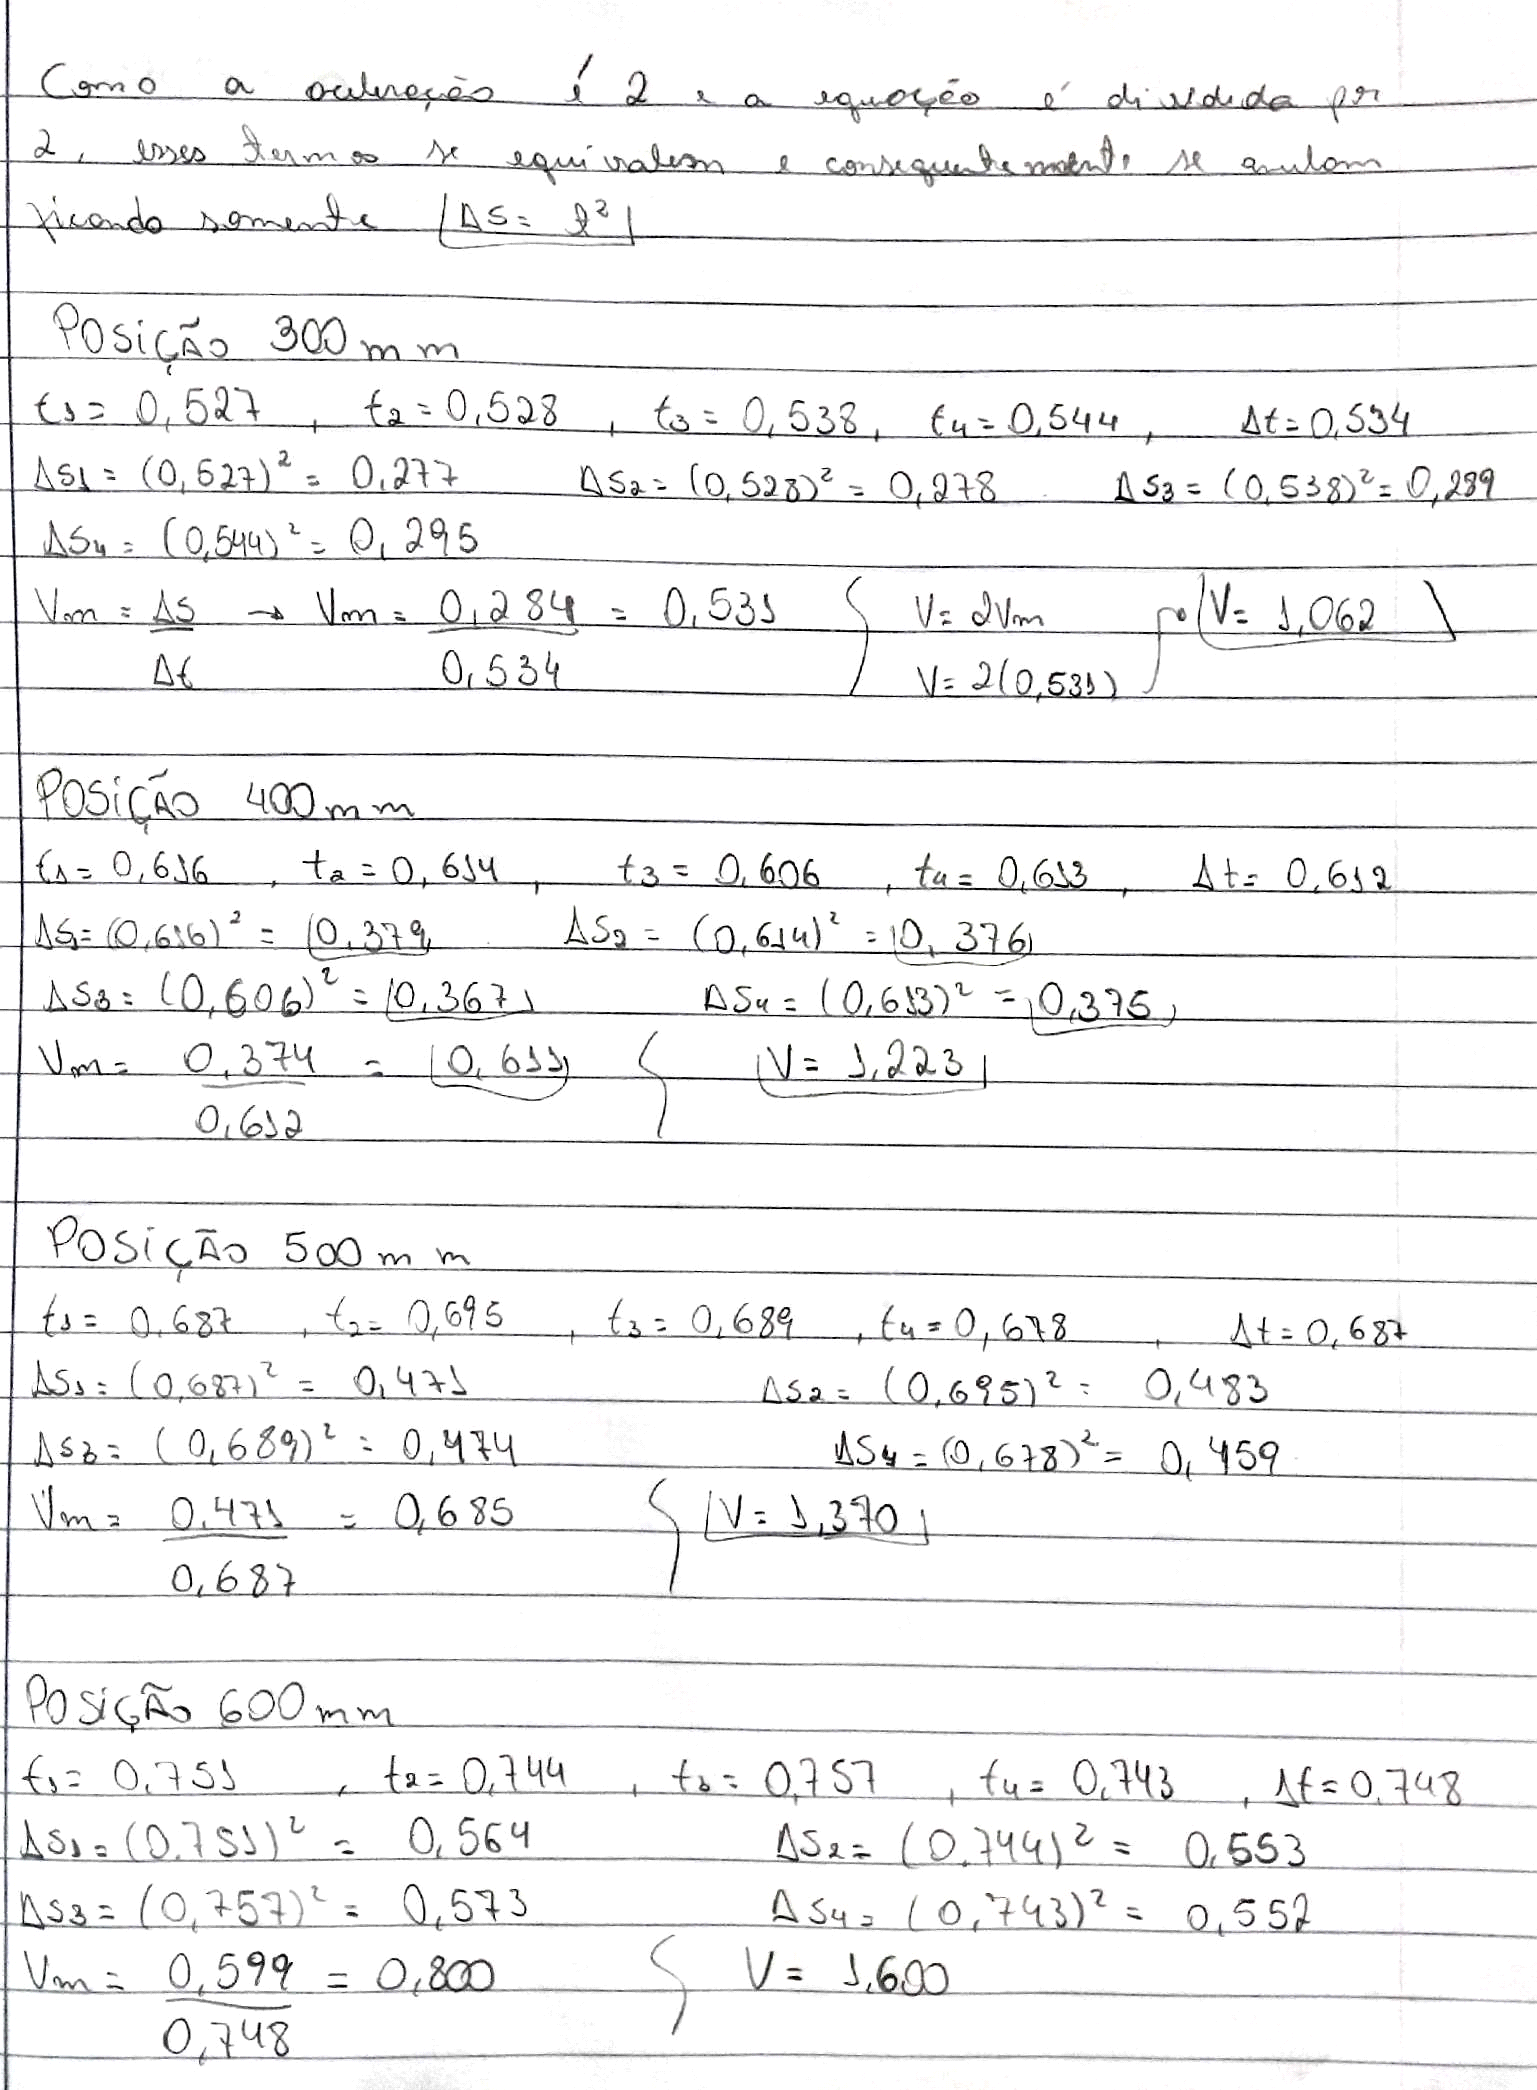 Como a aceleração é 2 e a equação é dividida por
2, esses termos se equivalem e consequentemente se anulam
ficando somente ΔS = t²
POSIÇÃO 300mm
t1 = 0,527 , t2 = 0,528 , t3 = 0,538 , t4 = 0,544 , Δt = 0,534
ΔS1 = (0,527)² = 0,277 ΔS2 = (0,528)² = 0,278 ΔS3 = (0,538)² = 0,289
ΔS4 = (0,544)² = 0,295
Vm = ΔS/Δt → Vm = 0,284/0,534 = 0,531 { V = 2Vm V = 2(0,531) } → V = 1,062
POSIÇÃO 400mm
t1 = 0,616 , t2 = 0,614 , t3 = 0,606 , t4 = 0,613 , Δt = 0,612
ΔS1 = (0,616)² = 0,379 ΔS2 = (0,614)² = 0,376
ΔS3 = (0,606)² = 0,367 ΔS4 = (0,613)² = 0,375
Vm = 0,374/0,612 = 0,611 { V = 1,223
POSIÇÃO 500mm
t1 = 0,687 , t2 = 0,695 , t3 = 0,689 , t4 = 0,678 , Δt = 0,687
ΔS1 = (0,687)² = 0,471 ΔS2 = (0,695)² = 0,483
ΔS3 = (0,689)² = 0,474 ΔS4 = (0,678)² = 0,459
Vm = 0,471/0,687 = 0,685 { V = 1,370
POSIÇÃO 600mm
t1 = 0,751 , t2 = 0,744 , t3 = 0,757 , t4 = 0,743 , Δt = 0,748
ΔS1 = (0,751)² = 0,564 ΔS2 = (0,744)² = 0,553
ΔS3 = (0,757)² = 0,573 ΔS4 = (0,743)² = 0,552
Vm = 0,599/0,748 = 0,800 { V = 1,600